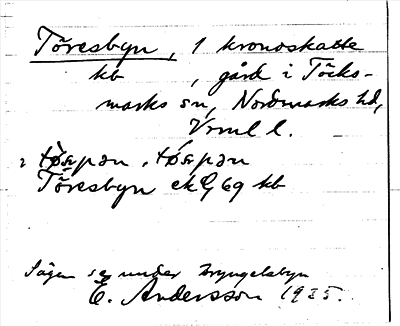 Töresbyn, 1 kronoskatte
kb , gård i Töcks-
marks sn, Nordmarks hd,
Vrml l.
Töresbyn ekG 69 kb
Sägen se under Bryngelsbyn
E. Andersson 1935.